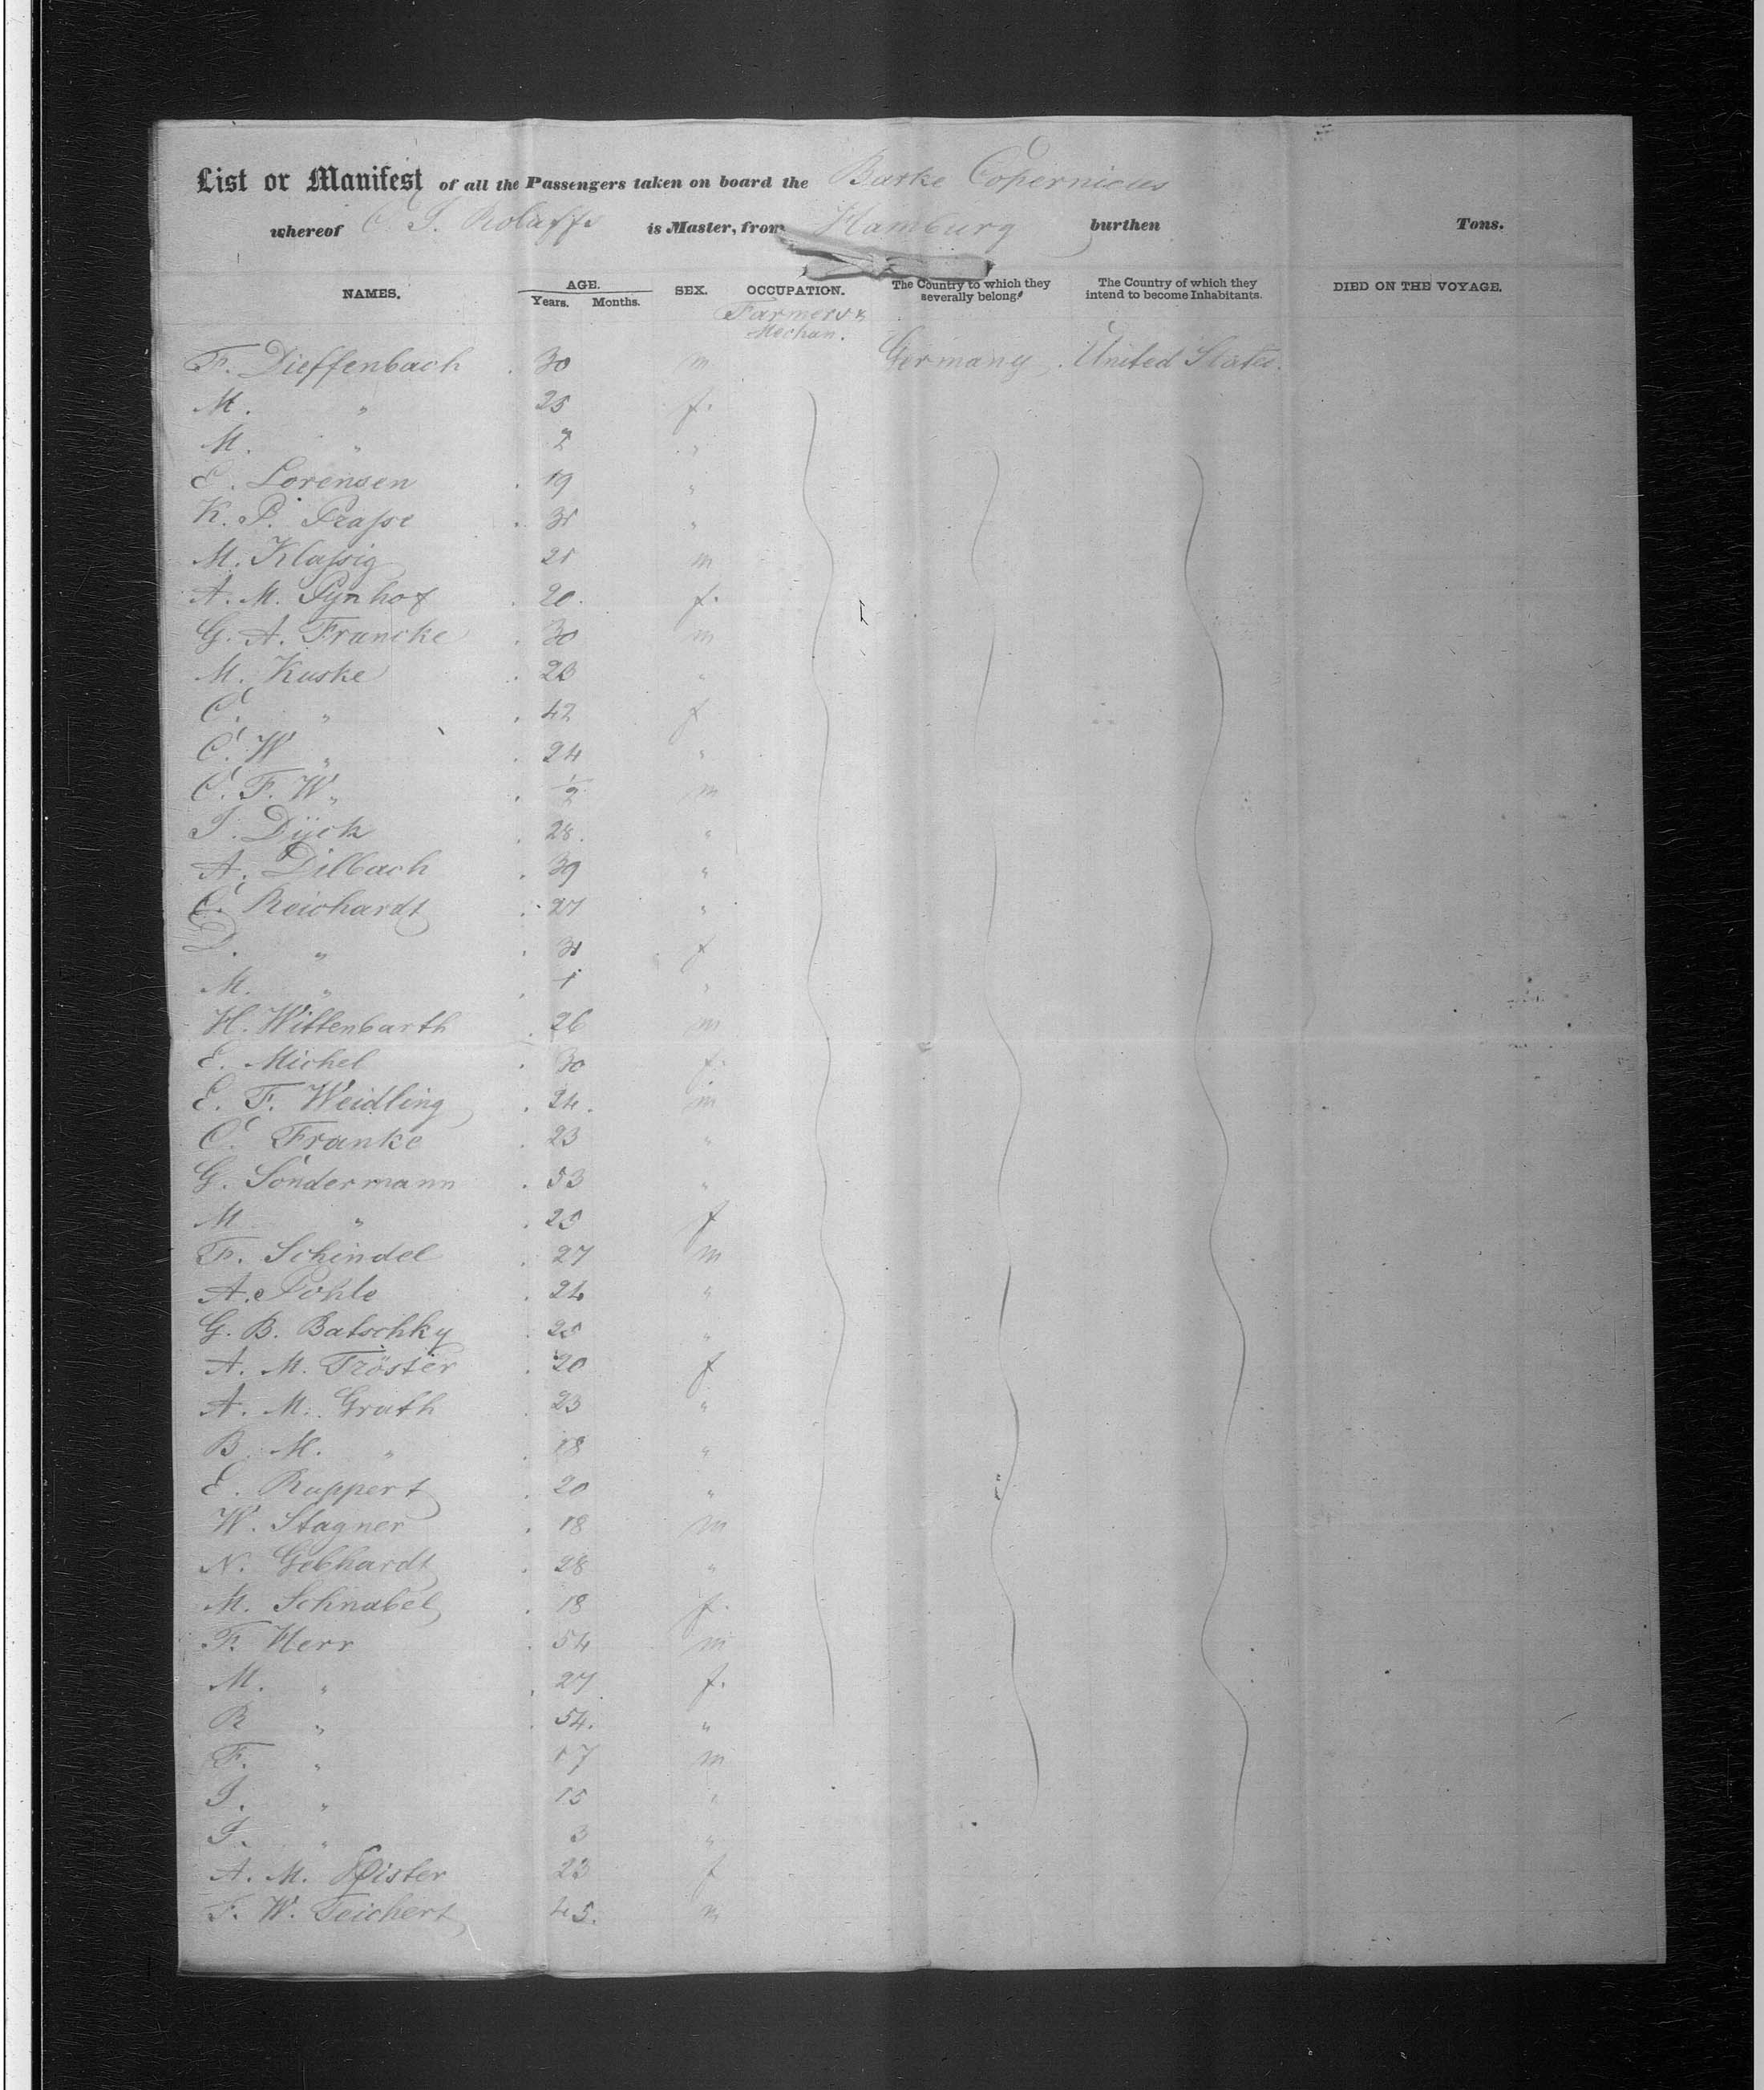 List or Manifest of all the Passengers taken on board the Barke Copernicus
whereof C. J. Rolaffs is Master, from Hamburg burthen Tons.
NAMES. AGE. Years. Months. SEX. OCCUPATION. The Country to which they severally belong. The Country of which they intend to become Inhabitants. DIED ON THE VOYAGE.
Farmers &
Mechan.
F. Dieffenbach . 30 m Germany . United States.
M. " 25 f.
M. " 2 "
E. Lorensen . 19 "
K. P. Praſse . 31 "
M. Klaſsig 21 m
A. M. Pynhof . 20. f.
G. A. Francke . 30 m
M. Kuske . 23 "
C. " . 42 f
C. W " . 24 "
C. F. W " . 1/2 m
J. Dÿck . 28. "
A. Dilbach . 39 "
C. Reichardt . 27 "
D. " . 31 f
M. " . 1 "
H. Wittenbarth . 26 m
E. Michel . 30 f.
E. F. Weidling . 24. m
C. Franke . 23 "
G. Sondermann . 53 "
M " . 25 f
F. Schindel . 27 m
A. Pohle . 24 "
G. B. Batschky . 25 "
A. M. Tröster . 20 f
A. M. Grath . 23 "
B. M. " . 18 "
E. Ruppert . 20 "
W. Stagner . 18 m
N. Gebhardt . 28 "
M. Schnabel . 18 f.
F. Herr . 54 m
M. " . 27 f.
R " . 54. "
F. " 17 m
J. " 15 "
J. " 3 "
A. M. Pfister 23 f
F. W. Teichert 45. m